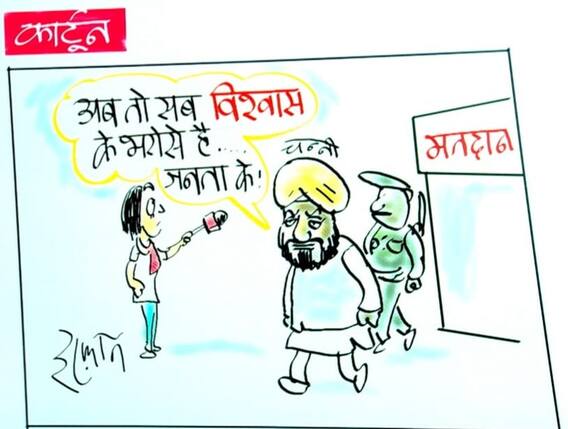 कार्टून
अब तो सब विश्वास
के भरोसे है.....
जनता के!
चन्नी
मतदान
इरफ़ान